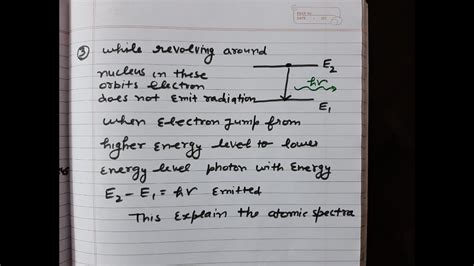 ③ while revolving around
nucleus in these
orbits electron
does not emit radiation
E2
hν
E1
when electron jump from
higher energy level to lower
energy level photon with energy
E2 - E1 = hν emitted
This explain the atomic spectra